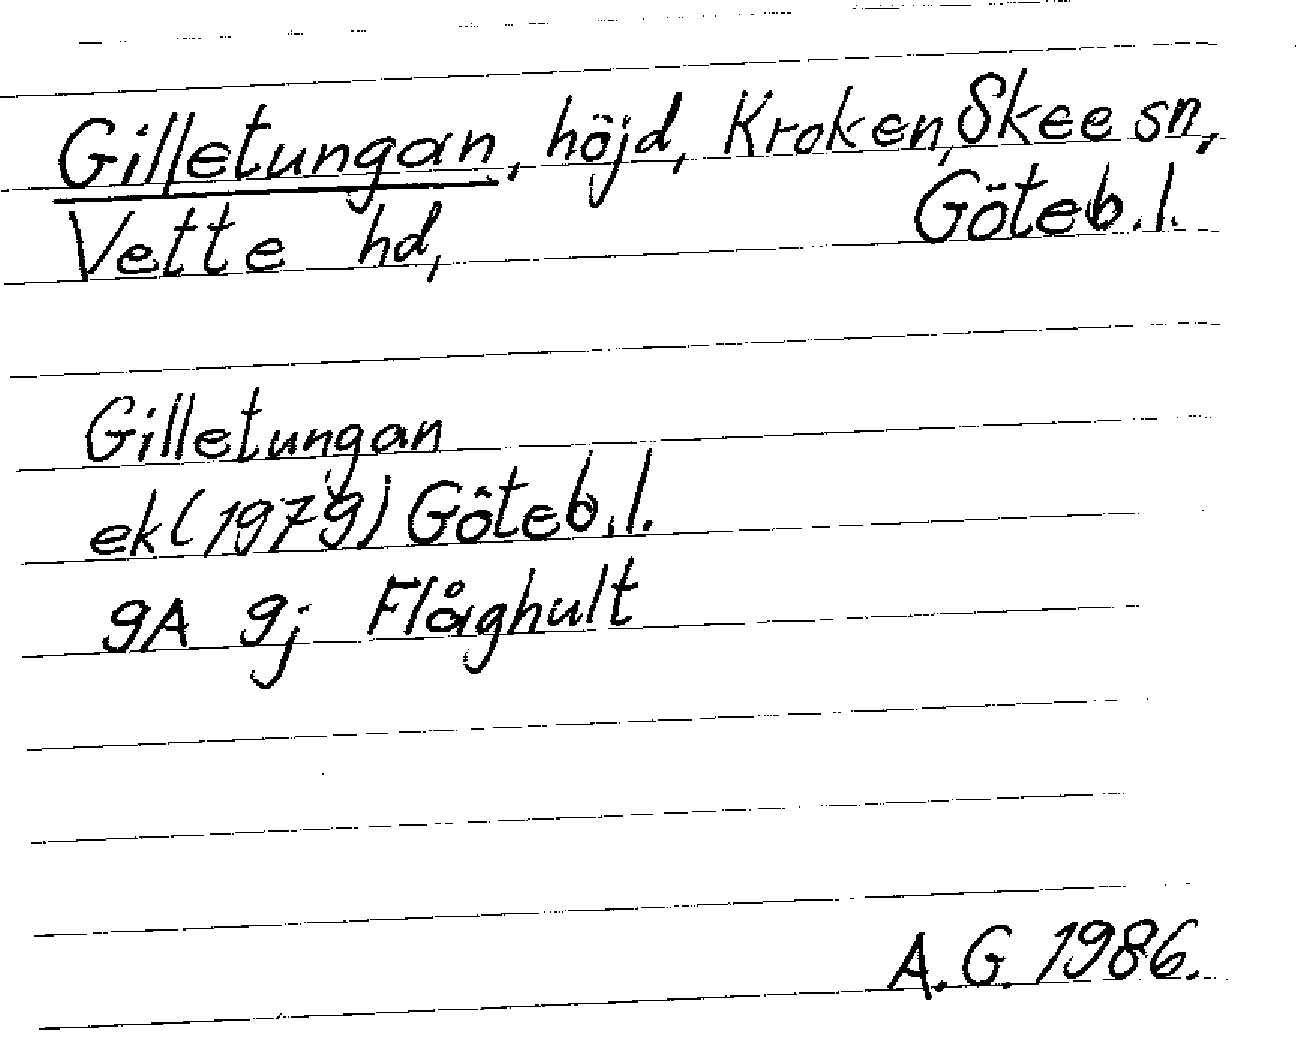 Gilletungan, höjd, Kroken, Skee sn,
Vette hd, Göteb.l.
Gilletungan
ek (1979) Göteb.l.
9A 9j Flåghult
A.G. 1986.